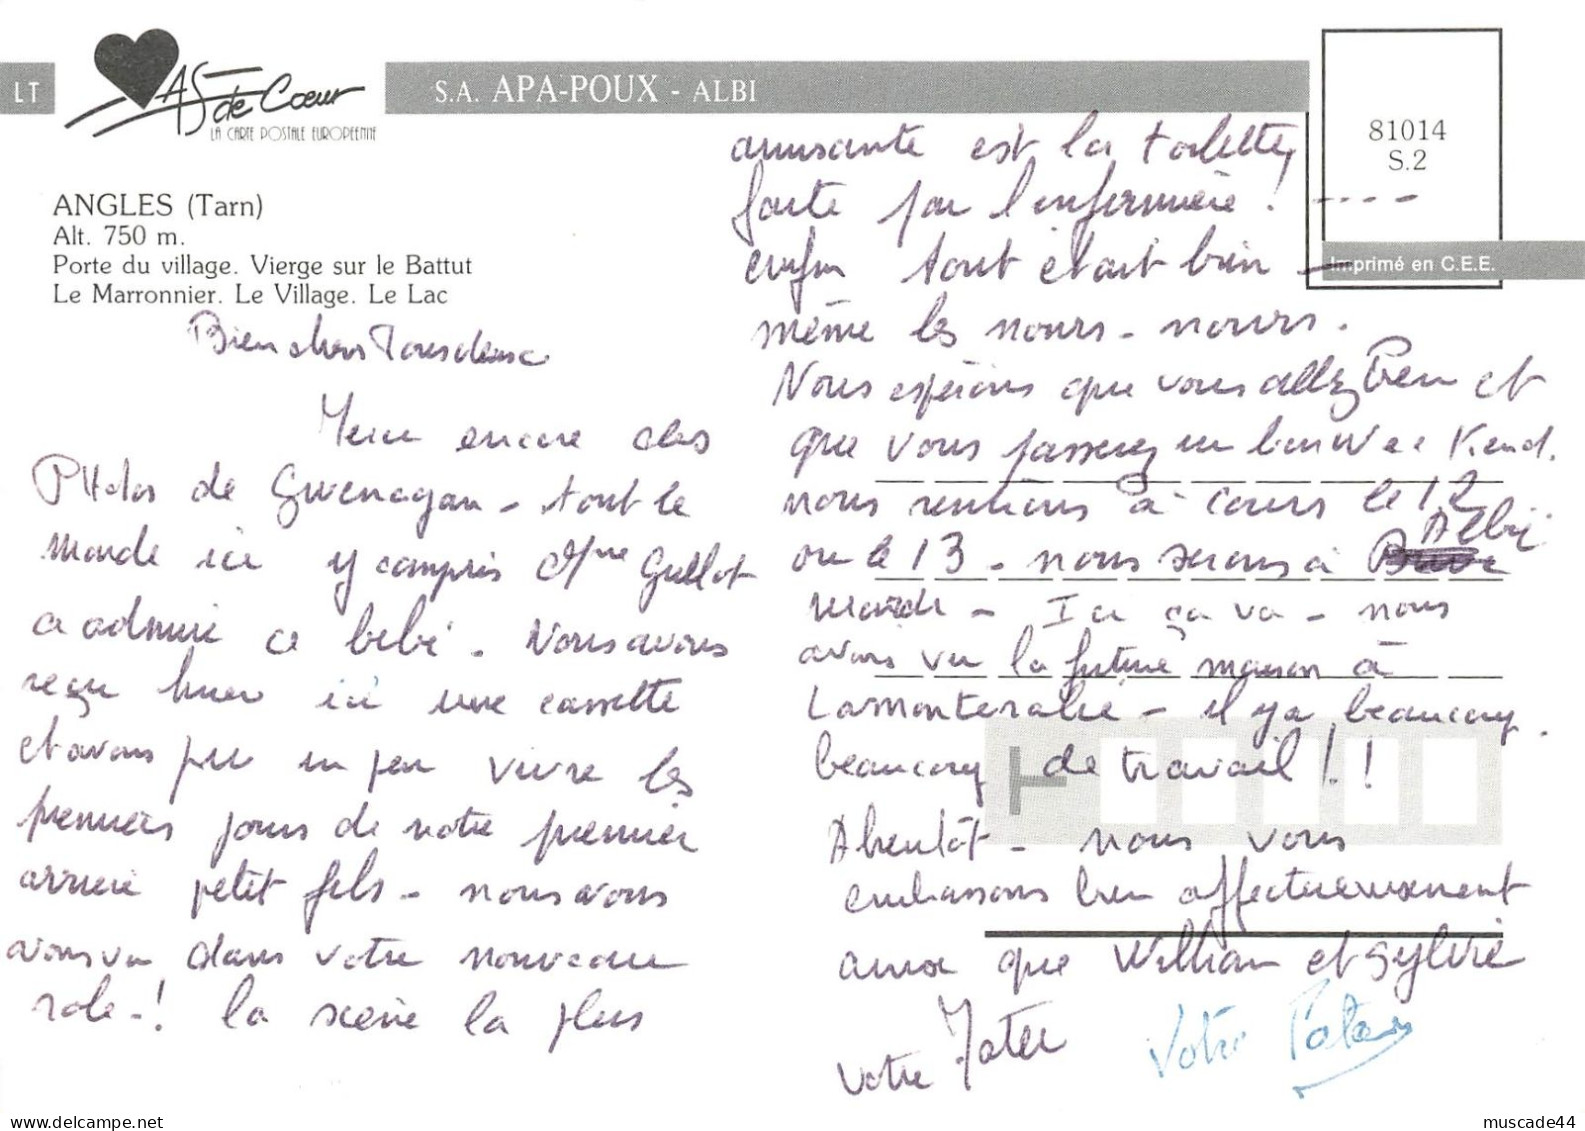 LT
As de Cœur
LA CARTE POSTALE EUROPÉENNE
S.A. APA-POUX - ALBI
81014
S.2
Imprimé en C.E.E.
ANGLES (Tarn)
Alt. 750 m.
Porte du village. Vierge sur le Battut
Le Marronnier. Le Village. Le Lac
Bien chers Tousdeux
Merci encore des
PHotos de Gwenegan - tout le
monde ici y compris Mme Gullot
a admiré ce bébé. Nous avons
reçu hier ici une cassette
et avons pu un peu vivre les
premiers jours de notre premier
arrière petit fils - nous avons
vous vu dans votre nouveau
role -! la scène la plus
amusante est la toilette,
faite par l'infirmière! ----
enfin tout était bien -
même les nours - nours.
Nous espérons que vous allez Bien et
que vous passerez un bon Week Kend.
nous rentrons à cours le 12
ou le 13 - nous serons à Albi
mardi - Ici ça va - nous
avons vu la future maison à
Lamontelarié - il y a beaucoup.
beaucoup de travail!!
A bientôt - nous vous
embrassons bien affectueusement
ainsi que William et Sylvie
votre Matei
Votre